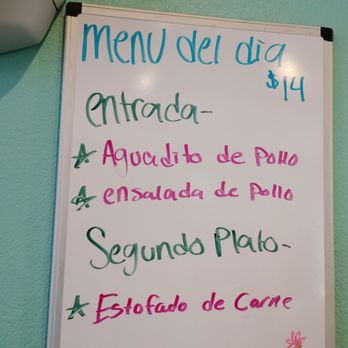 menu del dia
$14
entrada-
☆ Aguadito de pollo
☆ ensalada de pollo
Segundo Plato-
☆ Estofado de Carne